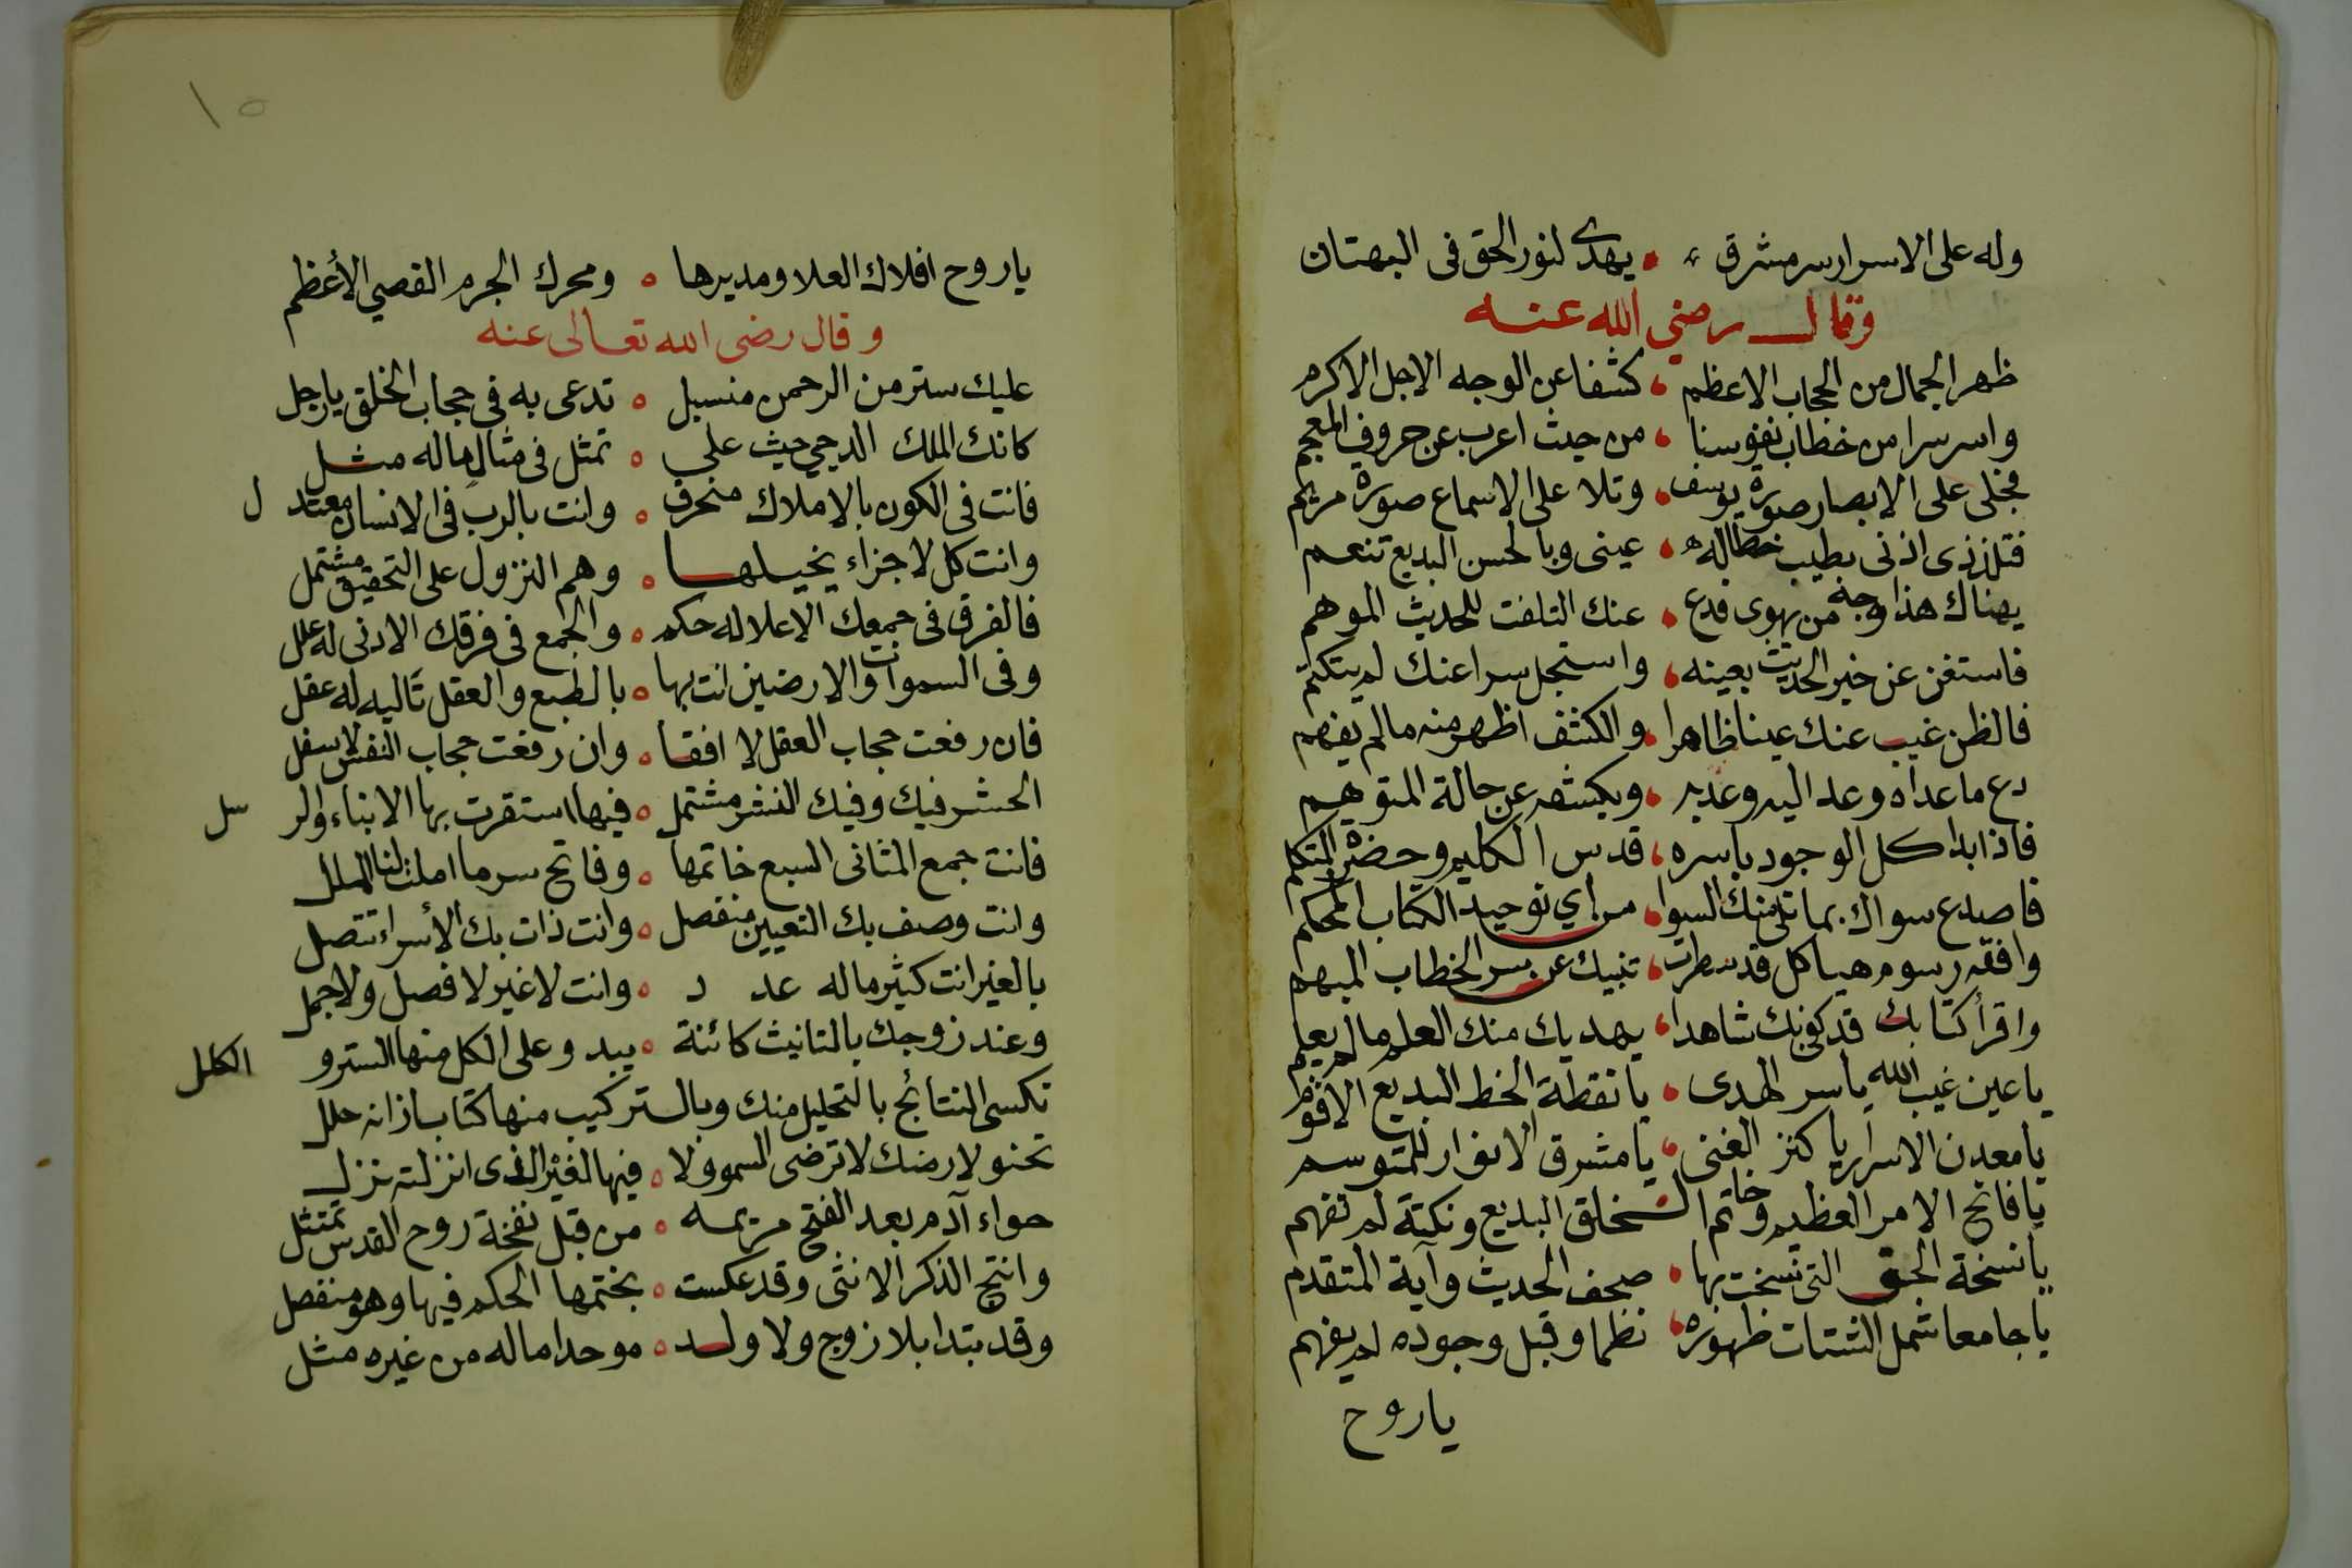 وله على الاسرار سر مشرق يهدى لنور الحق فى البهتان
وقال رضي الله عنه
ظهر الجمال من الحجاب الاعظم كشفا عن الوجه الاجل الاكرم
واسر سرا من خطاب نفوسنا من حيث اعرب عن حروف المعجم
فجلى على الابصار صورة يوسف وتلا على الاسماع صورة مريم
فتلذذى اذنى بطيب خطابه عينى وبالحسن البديع تنعم
يهناك هذا وجه من يهوى فدع عنك التلفت للحديث الموهم
فاستغن عن خبر الحديث بعينه واستجل سرا عنك لم يتكتم
فالظن غيب عنك عينا ظاهرا والكشف اظهر منه ما لم يفهم
دع ما عداه وعد اليه وعد به ويكشفه عن حالة المتوهم
فاذا بدا كل الوجود باسره قدس الكليم وحضرة المتكلم
فاصدع سواك بما تلى منك السوا من اي توحيد الكتاب المحكم
وافقه رسوم هياكل قد سطرت تنبيك عن سر الخطاب المبهم
واقرأ كتابك قد كفى بك شاهدا يهديك منك العلم ما لم يعلم
يا عين غيب الله يا سر الهدى يا نقطة الخط البديع الاقوم
يا معدن الاسرار يا كنز الغنى يا مشرق الانوار للمتوسم
يا فاتح الامر العظيم وخاتم الخلق البديع ونكتة لم تفهم
يا نسخة الحق التى نسخت بها صحف الحديث وآية المتقدم
يا جامعا شمل الشتات ظهوره نظما وقبل وجوده لم يفهم
يا روح
١٥
يا روح افلاك العلا ومديرها ومحرك الجرم القصي الأعظم
وقال رضى الله تعالى عنه
عليك ستر من الرحمن منسبل تدعى به فى حجاب الخلق يا رجل
كانك الملك الدجي حيث على تمثل فى مثال ما له مثل
فانت فى الكون بالاملاك منحرف وانت بالرب فى الانسان معتد ل
وانت كل لاجزاء يخيلها وهم النزول على التحقيق مشتمل
فالفرق فى جمعك الاعلا له حكم والجمع فى فرقك الادنى له علل
وفى السموات والارضين انت بها بالطبع والعقل تاليه له عقل
فان رفعت حجاب العقل لا افقا وان رفعت حجاب النفس لا سفل
الحشر فيك وفيك النشر مشتمل فيها استقرت بها الابناء والر سل
فانت جمع المثانى السبع خاتمها وفاتح سر ما املت لنا الملل
وانت وصف بك التعيين منفصل وانت ذات بك الأسراء تتصل
بالغير انت كثير ما له عد د وانت لا غير لا فصل ولا جمل
وعند زوجك بالتانيث كائنة يبدو على الكل منها الستر و الكلل
تكسى النتائج بالتحليل منك وبالتركيب منها كتاب زانه حلل
تحنو لارضك لا ترضى السمو ولا فيها لغير الذى انزلته نزل
حواء آدم بعد الفتح مريمه من قبل نفخة روح القدس تمتثل
وانتج الذكر الانثى وقد عكست بختمها الحكم فيها وهو منفصل
وقد بتدا بلا زوج ولا ولد موحدا ما له من غيره مثل